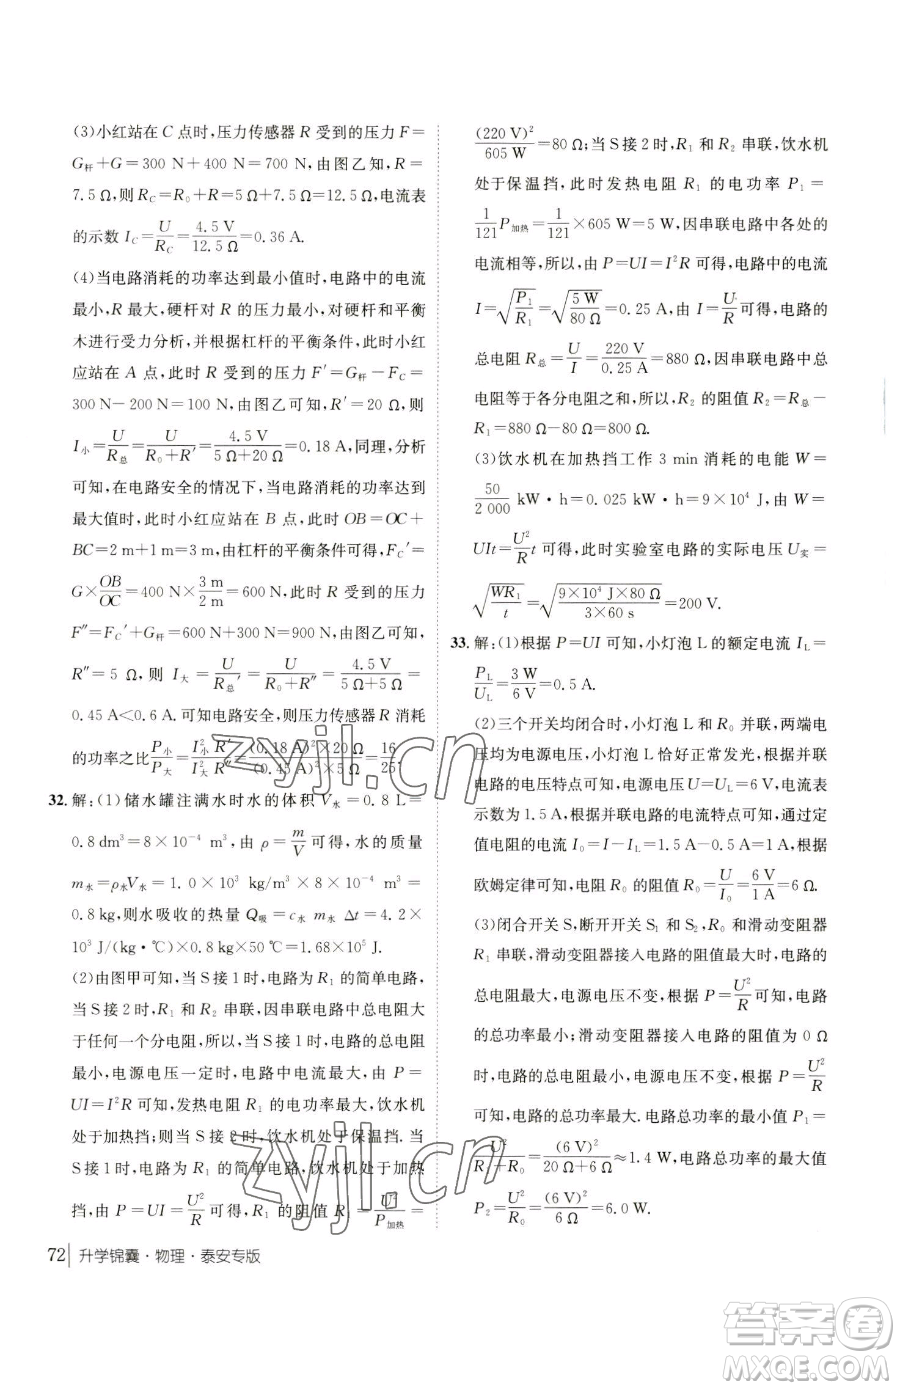 (3)小红站在 C 点时,压力传感器 R 受到的压力 F=
G杆+G=300 N+400 N=700 N,由图乙知,R=
7.5 Ω,则 R_C=R₀+R=5 Ω+7.5 Ω=12.5 Ω,电流表
的示数 I_C=U/R_C=4.5 V/12.5 Ω=0.36 A.
(4)当电路消耗的功率达到最小值时,电路中的电流
最小,R 最大,硬杆对 R 的压力最小,对硬杆和平衡
木进行受力分析,并根据杠杆的平衡条件,此时小红
应站在 A 点,此时 R 受到的压力 F′=G杆-F_C=
300 N-200 N=100 N,由图乙可知,R′=20 Ω,则
I小=U/R总=U/(R₀+R′)=4.5 V/(5 Ω+20 Ω)=0.18 A,同理,分析
可知,在电路安全的情况下,当电路消耗的功率达到
最大值时,此时小红应站在 B 点,此时 OB=OC+
BC=2 m+1 m=3 m,由杠杆的平衡条件可得,F_C′=
G×OB/OC=400 N×3 m/2 m=600 N,此时 R 受的压力
F″=F_C′+G杆=600 N+300 N=900 N,由图乙可知,
R″=5 Ω,则 I大=U/R总′=U/(R₀+R″)=4.5 V/(5 Ω+5 Ω)=
0.45 A<0.6 A.可知电路安全,则压力传感器 R 消耗
的功率之比P小/P大=I²小R′/I²大R″=(0.18 A)²×20 Ω/(0.45 A)²×5 Ω=16/25.
32. 解:(1)储水罐注满水时水的体积 V水=0.8 L=
0.8 dm³=8×10⁻⁴ m³,由 ρ=m/V可得,水的质量
m水=ρ水V水=1.0×10³ kg/m³×8×10⁻⁴ m³=
0.8 kg,则水吸收的热量 Q吸=c水 m水 Δt=4.2×
10³ J/(kg·℃)×0.8 kg×50 ℃=1.68×10⁵ J.
(2)由图甲可知,当 S 接 1 时,电路为 R₁ 的简单电路,
当 S 接 2 时,R₁ 和 R₂ 串联,因串联电路中总电阻大
于任何一个分电阻,所以,当 S 接 1 时,电路的总电阻
最小,电源电压一定时,电路中电流最大,由 P=
UI=I²R 可知,发热电阻 R₁ 的电功率最大,饮水机
处于加热挡;则当 S 接 2 时,饮水机处于保温挡.当
S 接 1 时,电路为 R₁ 的简单电路,饮水机处于加热
挡,由 P=UI=U²/R可得,R₁ 的阻值 R₁=U²/P加热=
(220 V)²/605 W=80 Ω;当 S 接 2 时,R₁ 和 R₂ 串联,饮水机
处于保温挡,此时发热电阻 R₁ 的电功率 P₁=
1/121P加热=1/121×605 W=5 W,因串联电路中各处的
电流相等,所以,由 P=UI=I²R 可得,电路中的电流
I=√(P₁/R₁)=√(5 W/80 Ω)=0.25 A,由 I=U/R可得,电路的
总电阻 R总=U/I=220 V/0.25 A=880 Ω,因串联电路中总
电阻等于各分电阻之和,所以,R₂ 的阻值 R₂=R总-
R₁=880 Ω-80 Ω=800 Ω.
(3)饮水机在加热挡工作 3 min 消耗的电能 W=
50/2 000 kW·h=0.025 kW·h=9×10⁴ J,由 W=
UIt=U²/R t 可得,此时实验室电路的实际电压 U实=
√(WR₁/t)=√(9×10⁴ J×80 Ω/3×60 s)=200 V.
33. 解:(1)根据 P=UI 可知,小灯泡 L 的额定电流 I_L=
P_L/U_L=3 W/6 V=0.5 A.
(2)三个开关均闭合时,小灯泡 L 和 R₀ 并联,两端电
压均为电源电压,小灯泡 L 恰好正常发光,根据并联
电路的电压特点可知,电源电压 U=U_L=6 V,电流表
示数为 1.5 A,根据并联电路的电流特点可知,通过定
值电阻的电流 I₀=I-I_L=1.5 A-0.5 A=1 A,根据
欧姆定律可知,电阻 R₀ 的阻值 R₀=U/I₀=6 V/1 A=6 Ω.
(3)闭合开关 S,断开开关 S₁ 和 S₂,R₀ 和滑动变阻器
R₁ 串联,滑动变阻器接入电路的阻值最大时,电路的
总电阻最大,电源电压不变,根据 P=U²/R可知,电路
的总功率最小;滑动变阻器接入电路的阻值为 0 Ω
时,电路的总电阻最小,电源电压不变,根据 P=U²/R
可知,电路的总功率最大.电路总功率的最小值 P₁=
U²/(R₁+R₀)=(6 V)²/(20 Ω+6 Ω)≈1.4 W,电路总功率的最大值
P₂=U²/R₀=(6 V)²/6 Ω=6.0 W.
72 升学锦囊·物理·泰安专版
zyjl.cn
zyjl.cn
答案圈
MXQE.COM